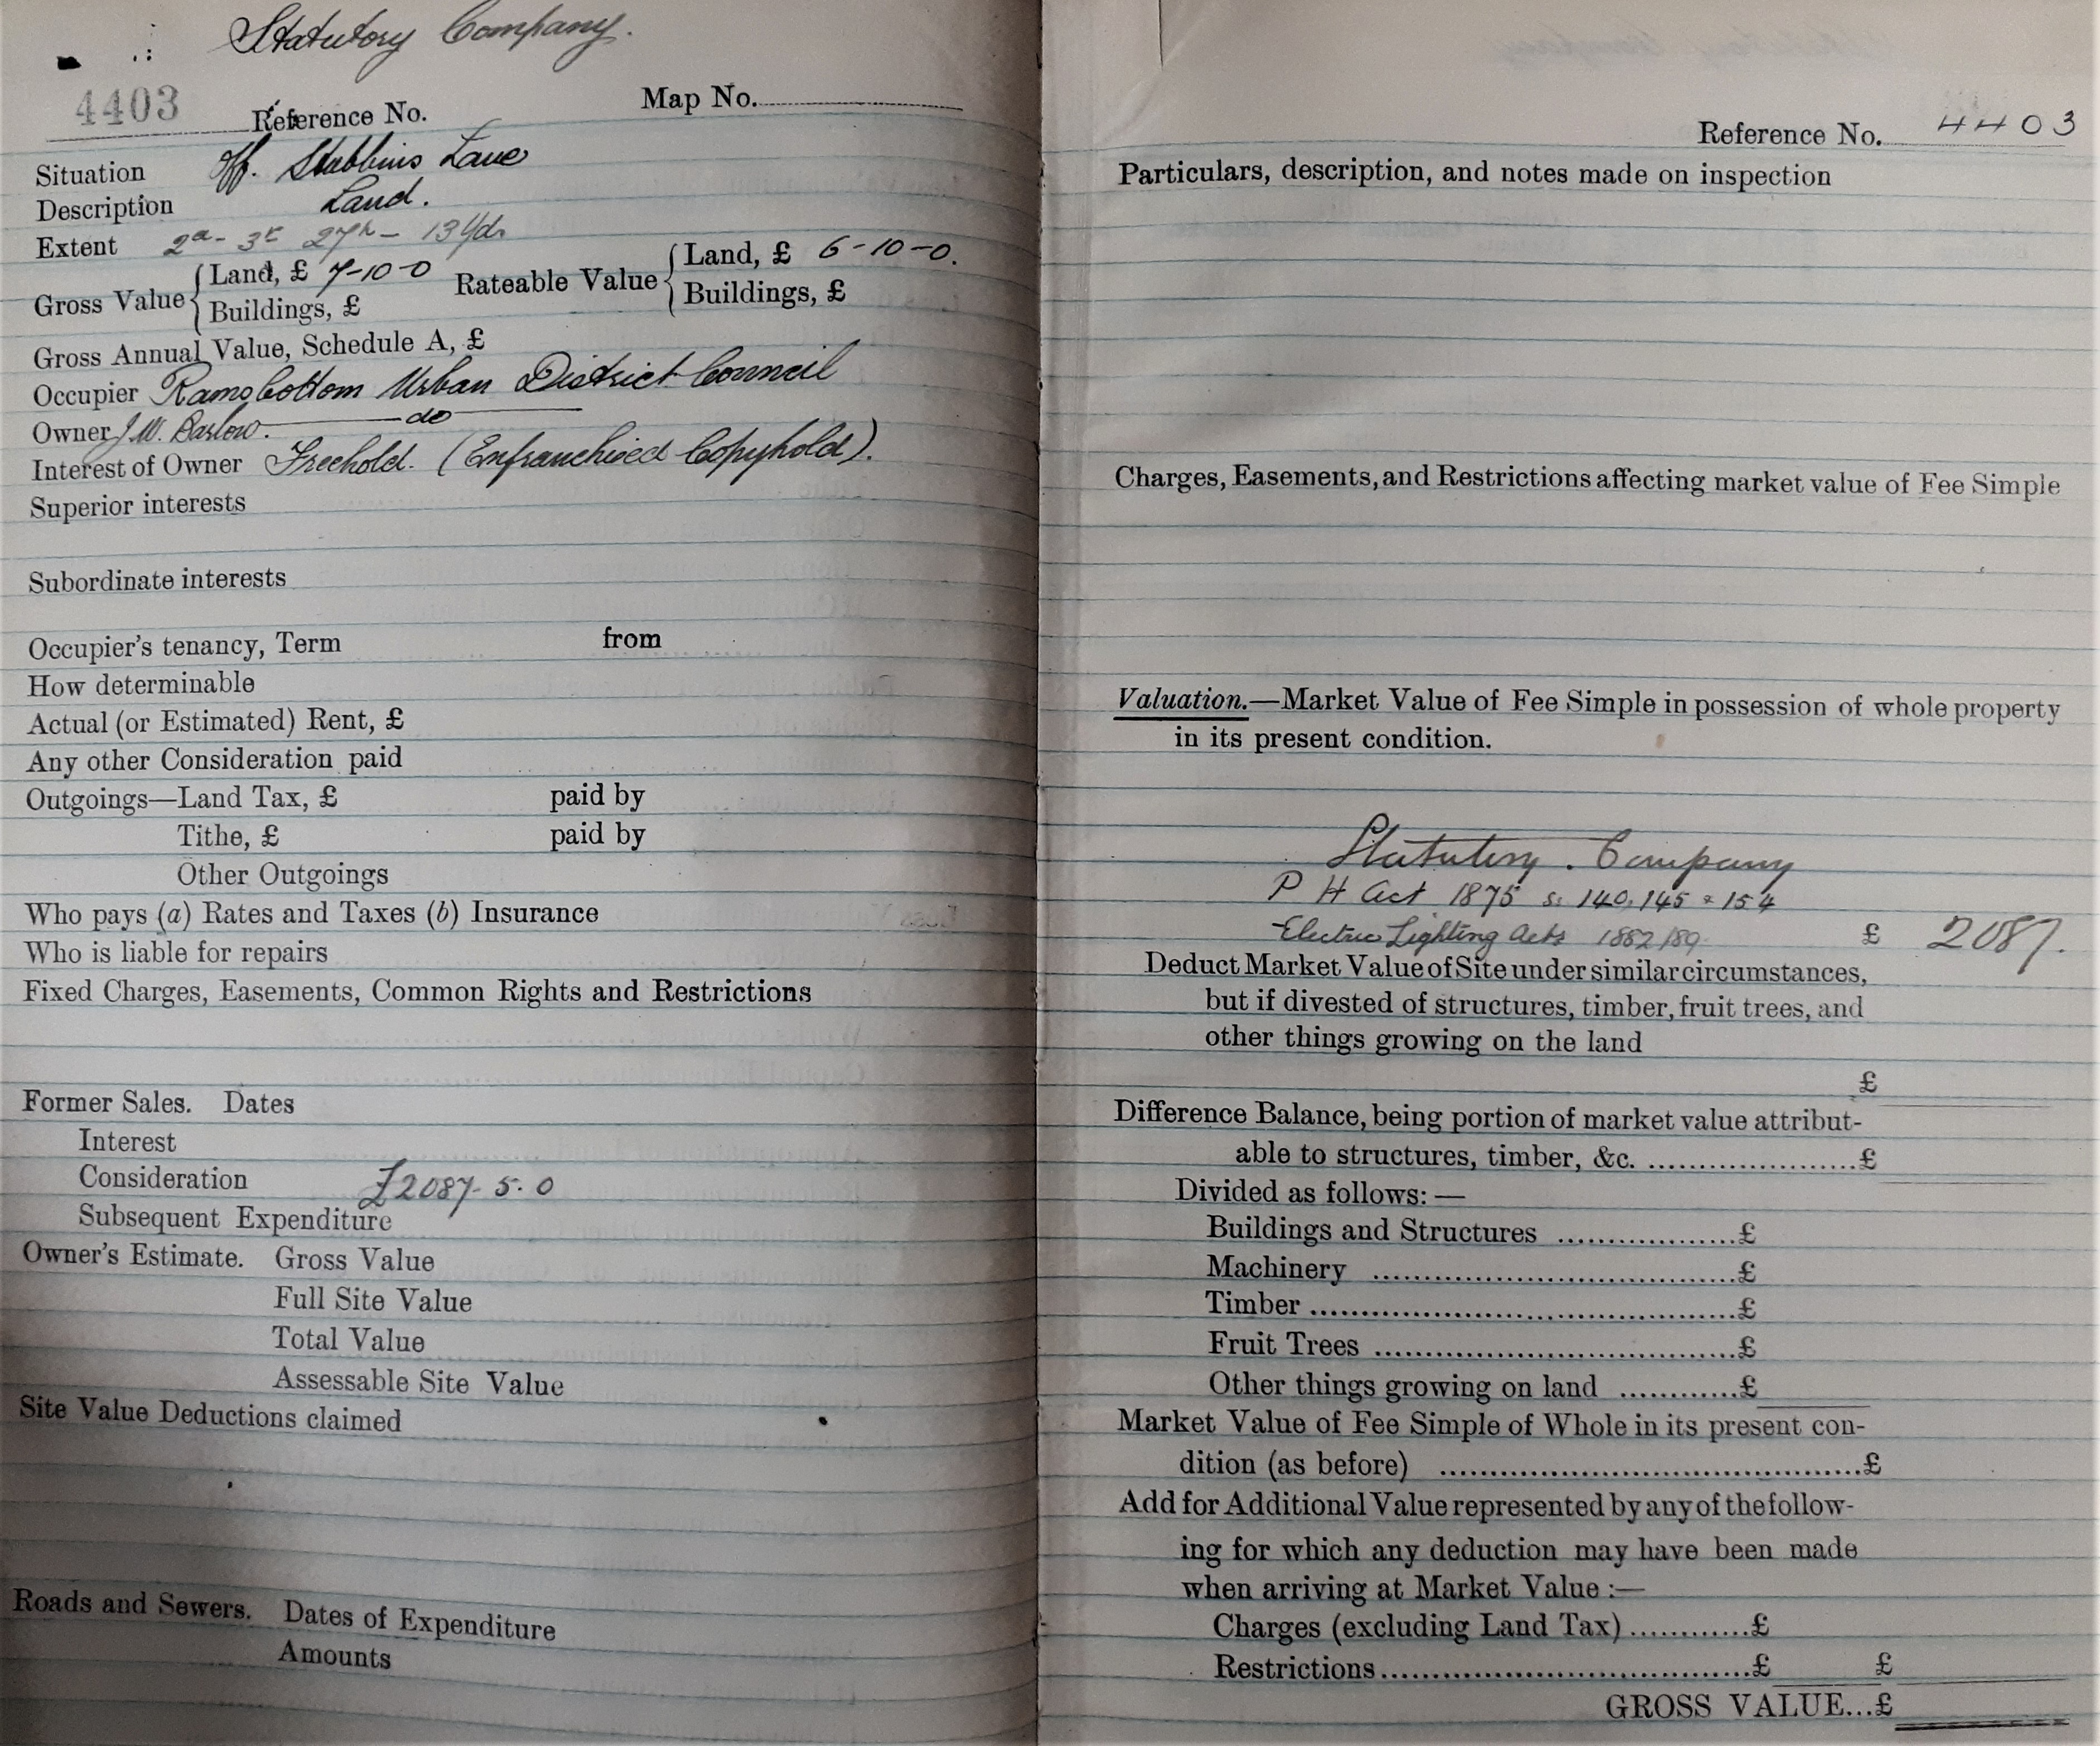 Statutory Company.
4403 Reference No. Map No.
Situation off. Stubbins Lane
Description Land.
Extent 2a- 3r 27p- 13 yds
Gross Value { Land, £ 7-10-0 Rateable Value { Land, £ 6-10-0.
Buildings, £ Buildings, £
Gross Annual Value, Schedule A, £
Occupier Ramsbottom Urban District Council
Owner J. W. Barlow. do
Interest of Owner Freehold. (Enfranchised Copyhold).
Superior interests
Subordinate interests
Occupier's tenancy, Term from
How determinable
Actual (or Estimated) Rent, £
Any other Consideration paid
Outgoings—Land Tax, £ paid by
Tithe, £ paid by
Other Outgoings
Who pays (a) Rates and Taxes (b) Insurance
Who is liable for repairs
Fixed Charges, Easements, Common Rights and Restrictions
Former Sales. Dates
Interest
Consideration £2087-5-0
Subsequent Expenditure
Owner's Estimate. Gross Value
Full Site Value
Total Value
Assessable Site Value
Site Value Deductions claimed
Roads and Sewers. Dates of Expenditure
Amounts
Reference No. 4403
Particulars, description, and notes made on inspection
Charges, Easements, and Restrictions affecting market value of Fee Simple
Valuation.—Market Value of Fee Simple in possession of whole property
in its present condition.
Statutory. Company
P H Act 1875 s. 140, 145 & 154
Electric Lighting Acts 1882/89 £ 2087.
Deduct Market Value of Site under similar circumstances,
but if divested of structures, timber, fruit trees, and
other things growing on the land
£
Difference Balance, being portion of market value attribut-
able to structures, timber, &c. .....................£
Divided as follows:—
Buildings and Structures ..................£
Machinery .....................................£
Timber...........................................£
Fruit Trees .....................................£
Other things growing on land ............£
Market Value of Fee Simple of Whole in its present con-
dition (as before) ...........................................£
Add for Additional Value represented by any of the follow-
ing for which any deduction may have been made
when arriving at Market Value :—
Charges (excluding Land Tax)............£
Restrictions.....................................£ £
GROSS VALUE...£